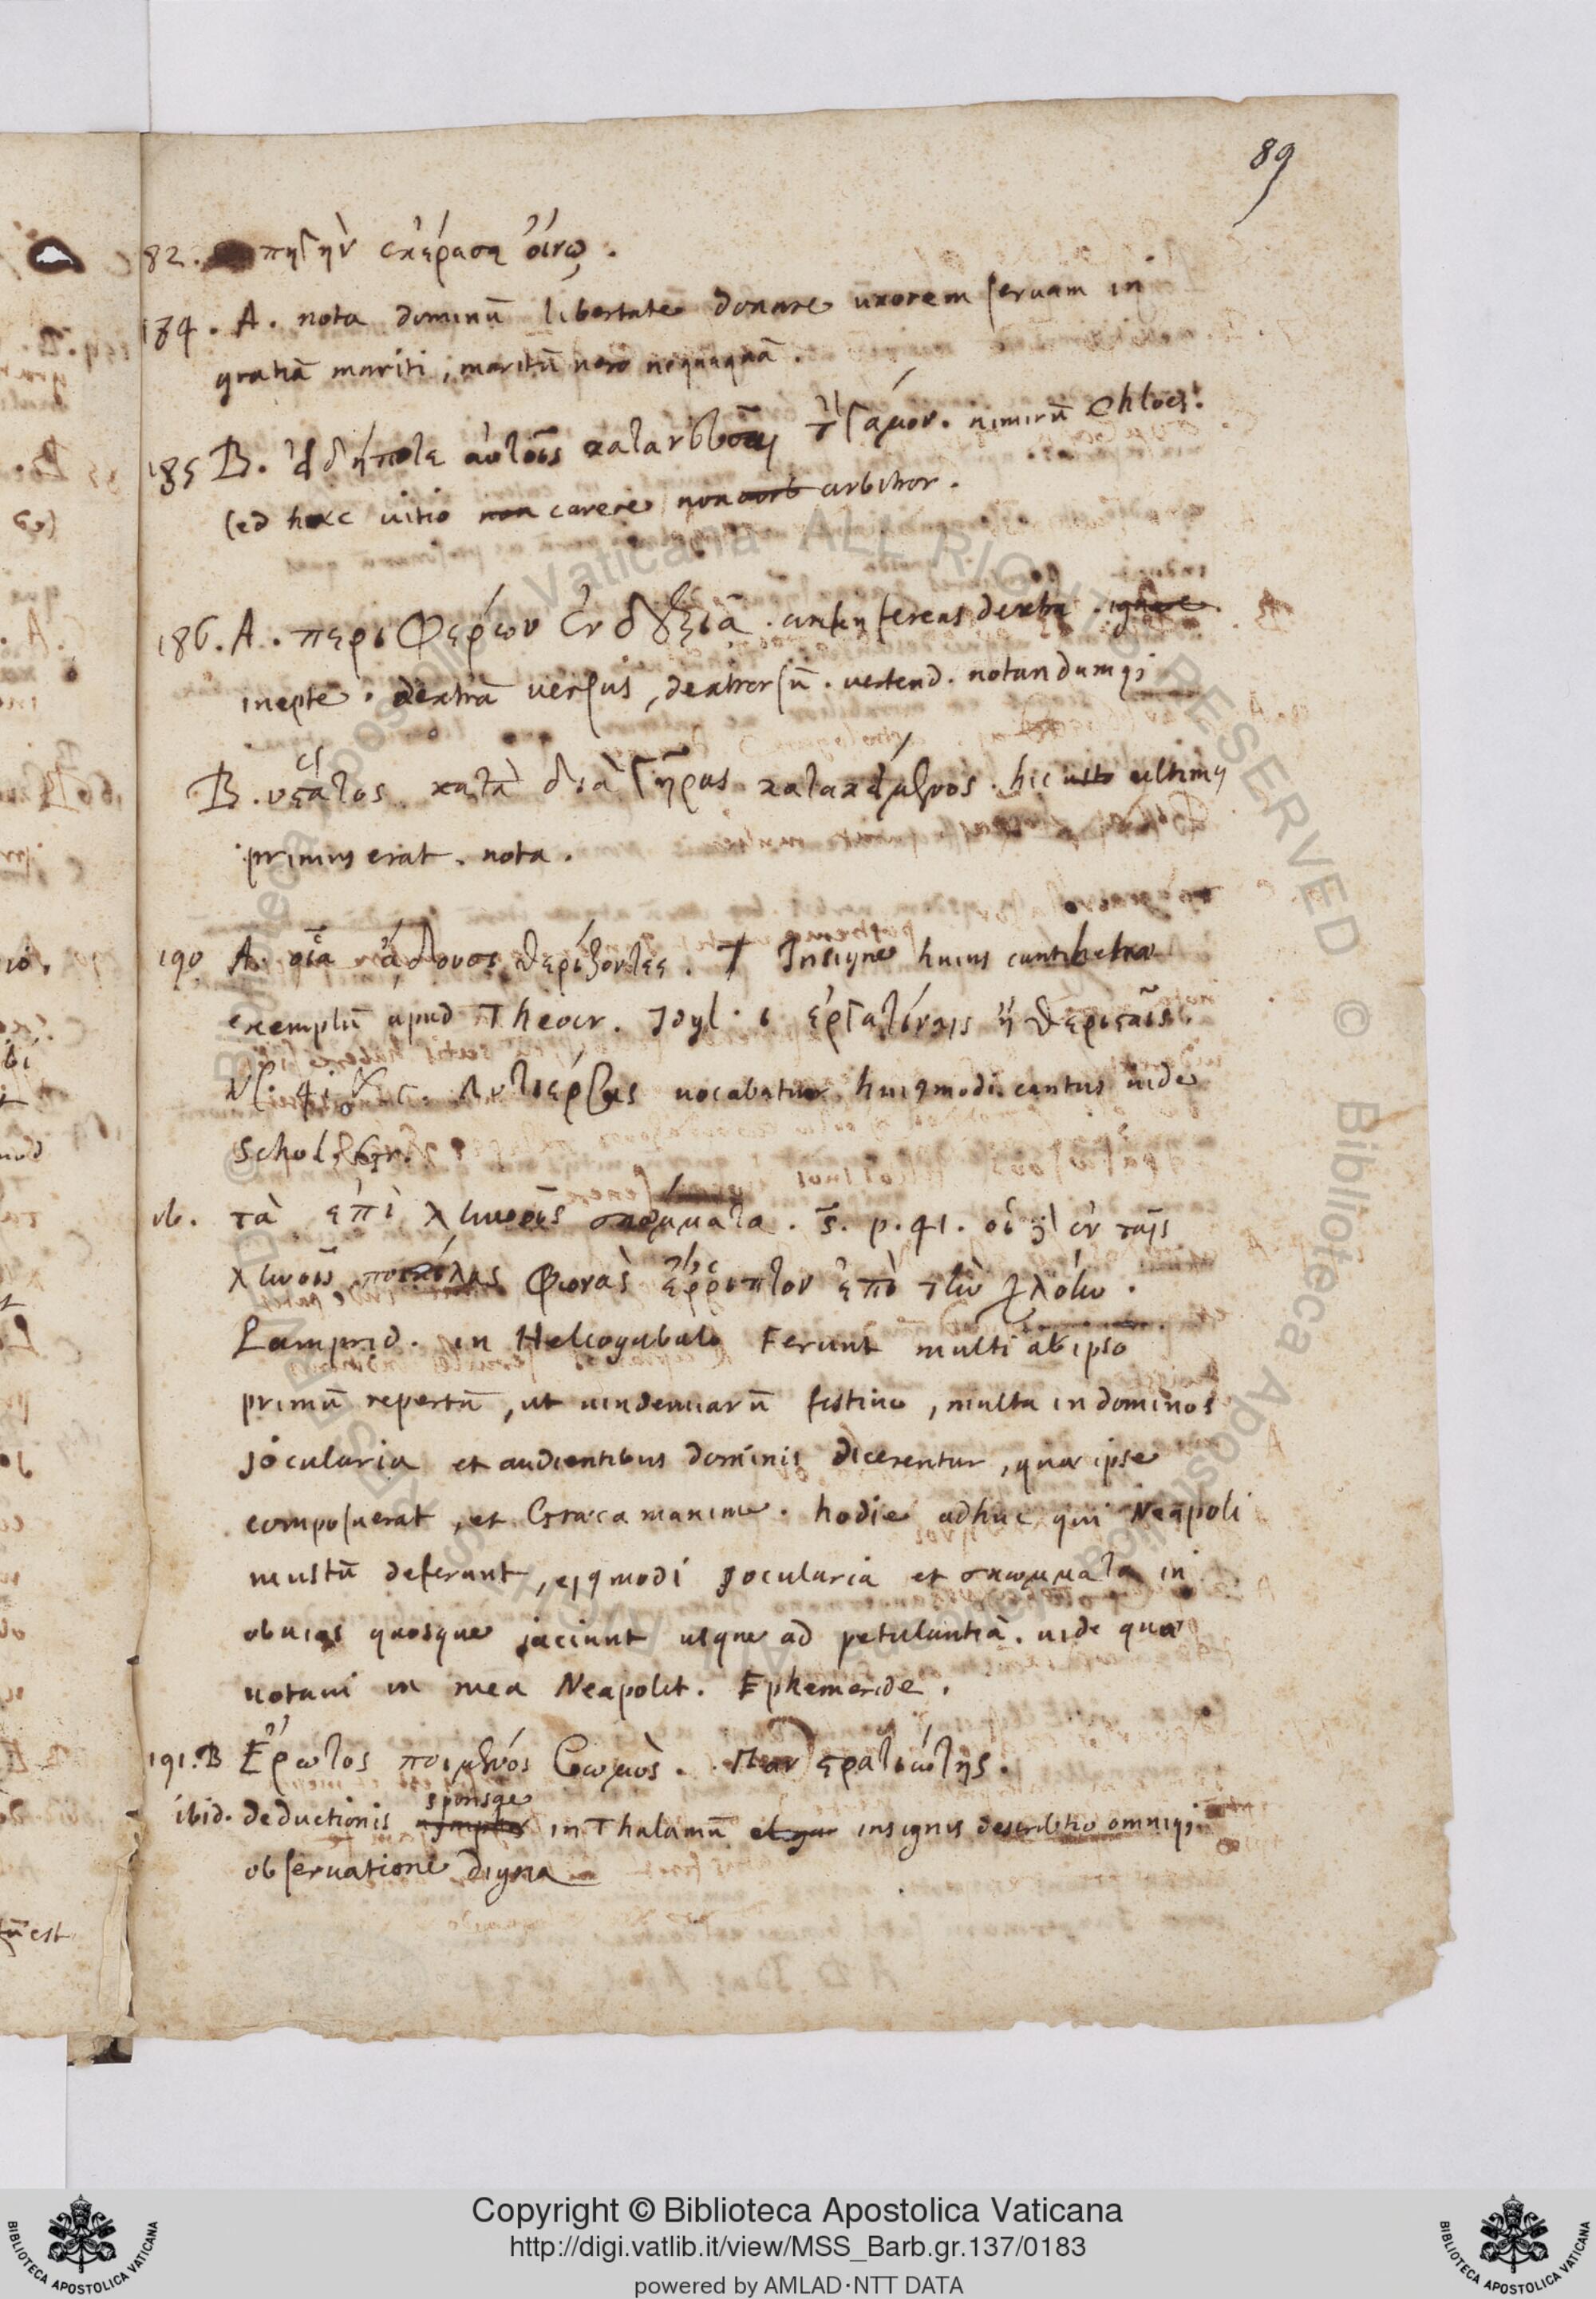 89
82. πηγὴν ἐκέρασα οἴνῳ.
184. A. nota dominũ libertate donare uxorem seruam in
gratiã mariti, maritũ uero nequaquã.
185 B. αὐτοῖς τὸν γάμον. nimirũ Chloes.
sed haec uitio non carere non arbitror.
186. A. περιφέρων ἐν δεξιᾷ. dextra
inepte. dextrã uersus, dextrorsũ. uertend. notandumq;
B. ὕστατος κατὰ διὰ γῆρας. hic ultimus
primus erat. nota.
190 A. οἷα ᾄδουσι θερίζοντες. Insigne huius
exemplũ apud Theocr. Idyl. ι ἐργατίναις ἢ θερισταῖς.
Λυτιέρσας uocabatur huiqmodi cantus uide
Schol. Gr.
ib. τὰ ἐπὶ ληνοῖς σκώμματα. p. 41. οἱ δὲ ἐν ταῖς
ληνοῖς ποικίλας φωνὰς ἔρριπτον ἐπὶ τὴν χλόην.
Lamprid. in Heliogabalo Ferunt multi ab ipso
primũ repertũ, ut uindemiarũ festiuo, multa in dominos
jocularia et audientibus dominis dicerentur, quae ipse
composuerat, et Graeca maxime. hodie adhuc qui Neapoli
mustũ deferunt, ejqmodi jocularia et σκώμματα in
obuios quosque jaciunt usque ad petulantiã. uide quae
notaui in mea Neapolit. Ephemeride.
191. B Ἔρωτος ποιμένος βωμὸς. Παν στρατιώτης.
sponsae
ibid. deductionis nymphes in Thalamũ insignis descriptio omniq;
obseruatione digna
Copyright © Biblioteca Apostolica Vaticana
http://digi.vatlib.it/view/MSS_Barb.gr.137/0183
powered by AMLAD·NTT DATA
BIBLIOTECA APOSTOLICA VATICANA
BIBLIOTECA APOSTOLICA VATICANA